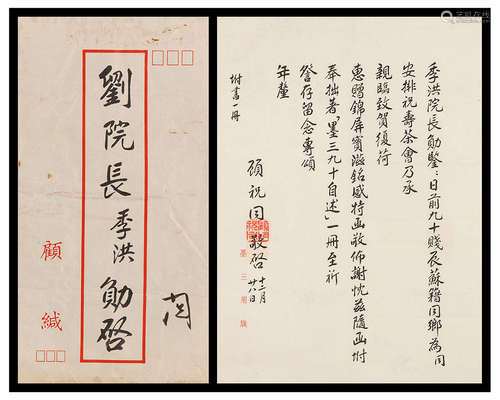 劉院長季洪勛啓
顧緘
季洪院長勛鑒:日前九十賤辰蘇籍同鄉為同
安排祝壽茶會乃承
親臨致賀復荷
惠贈錦屏寶滋銘感特函敬佈謝忱茲隨函坿
奉拙著「墨三九十自述」一冊至祈
詧存留念專頌
年釐
顧祝同敬啓
十二月
廿八日
坿書一冊
墨三用牋